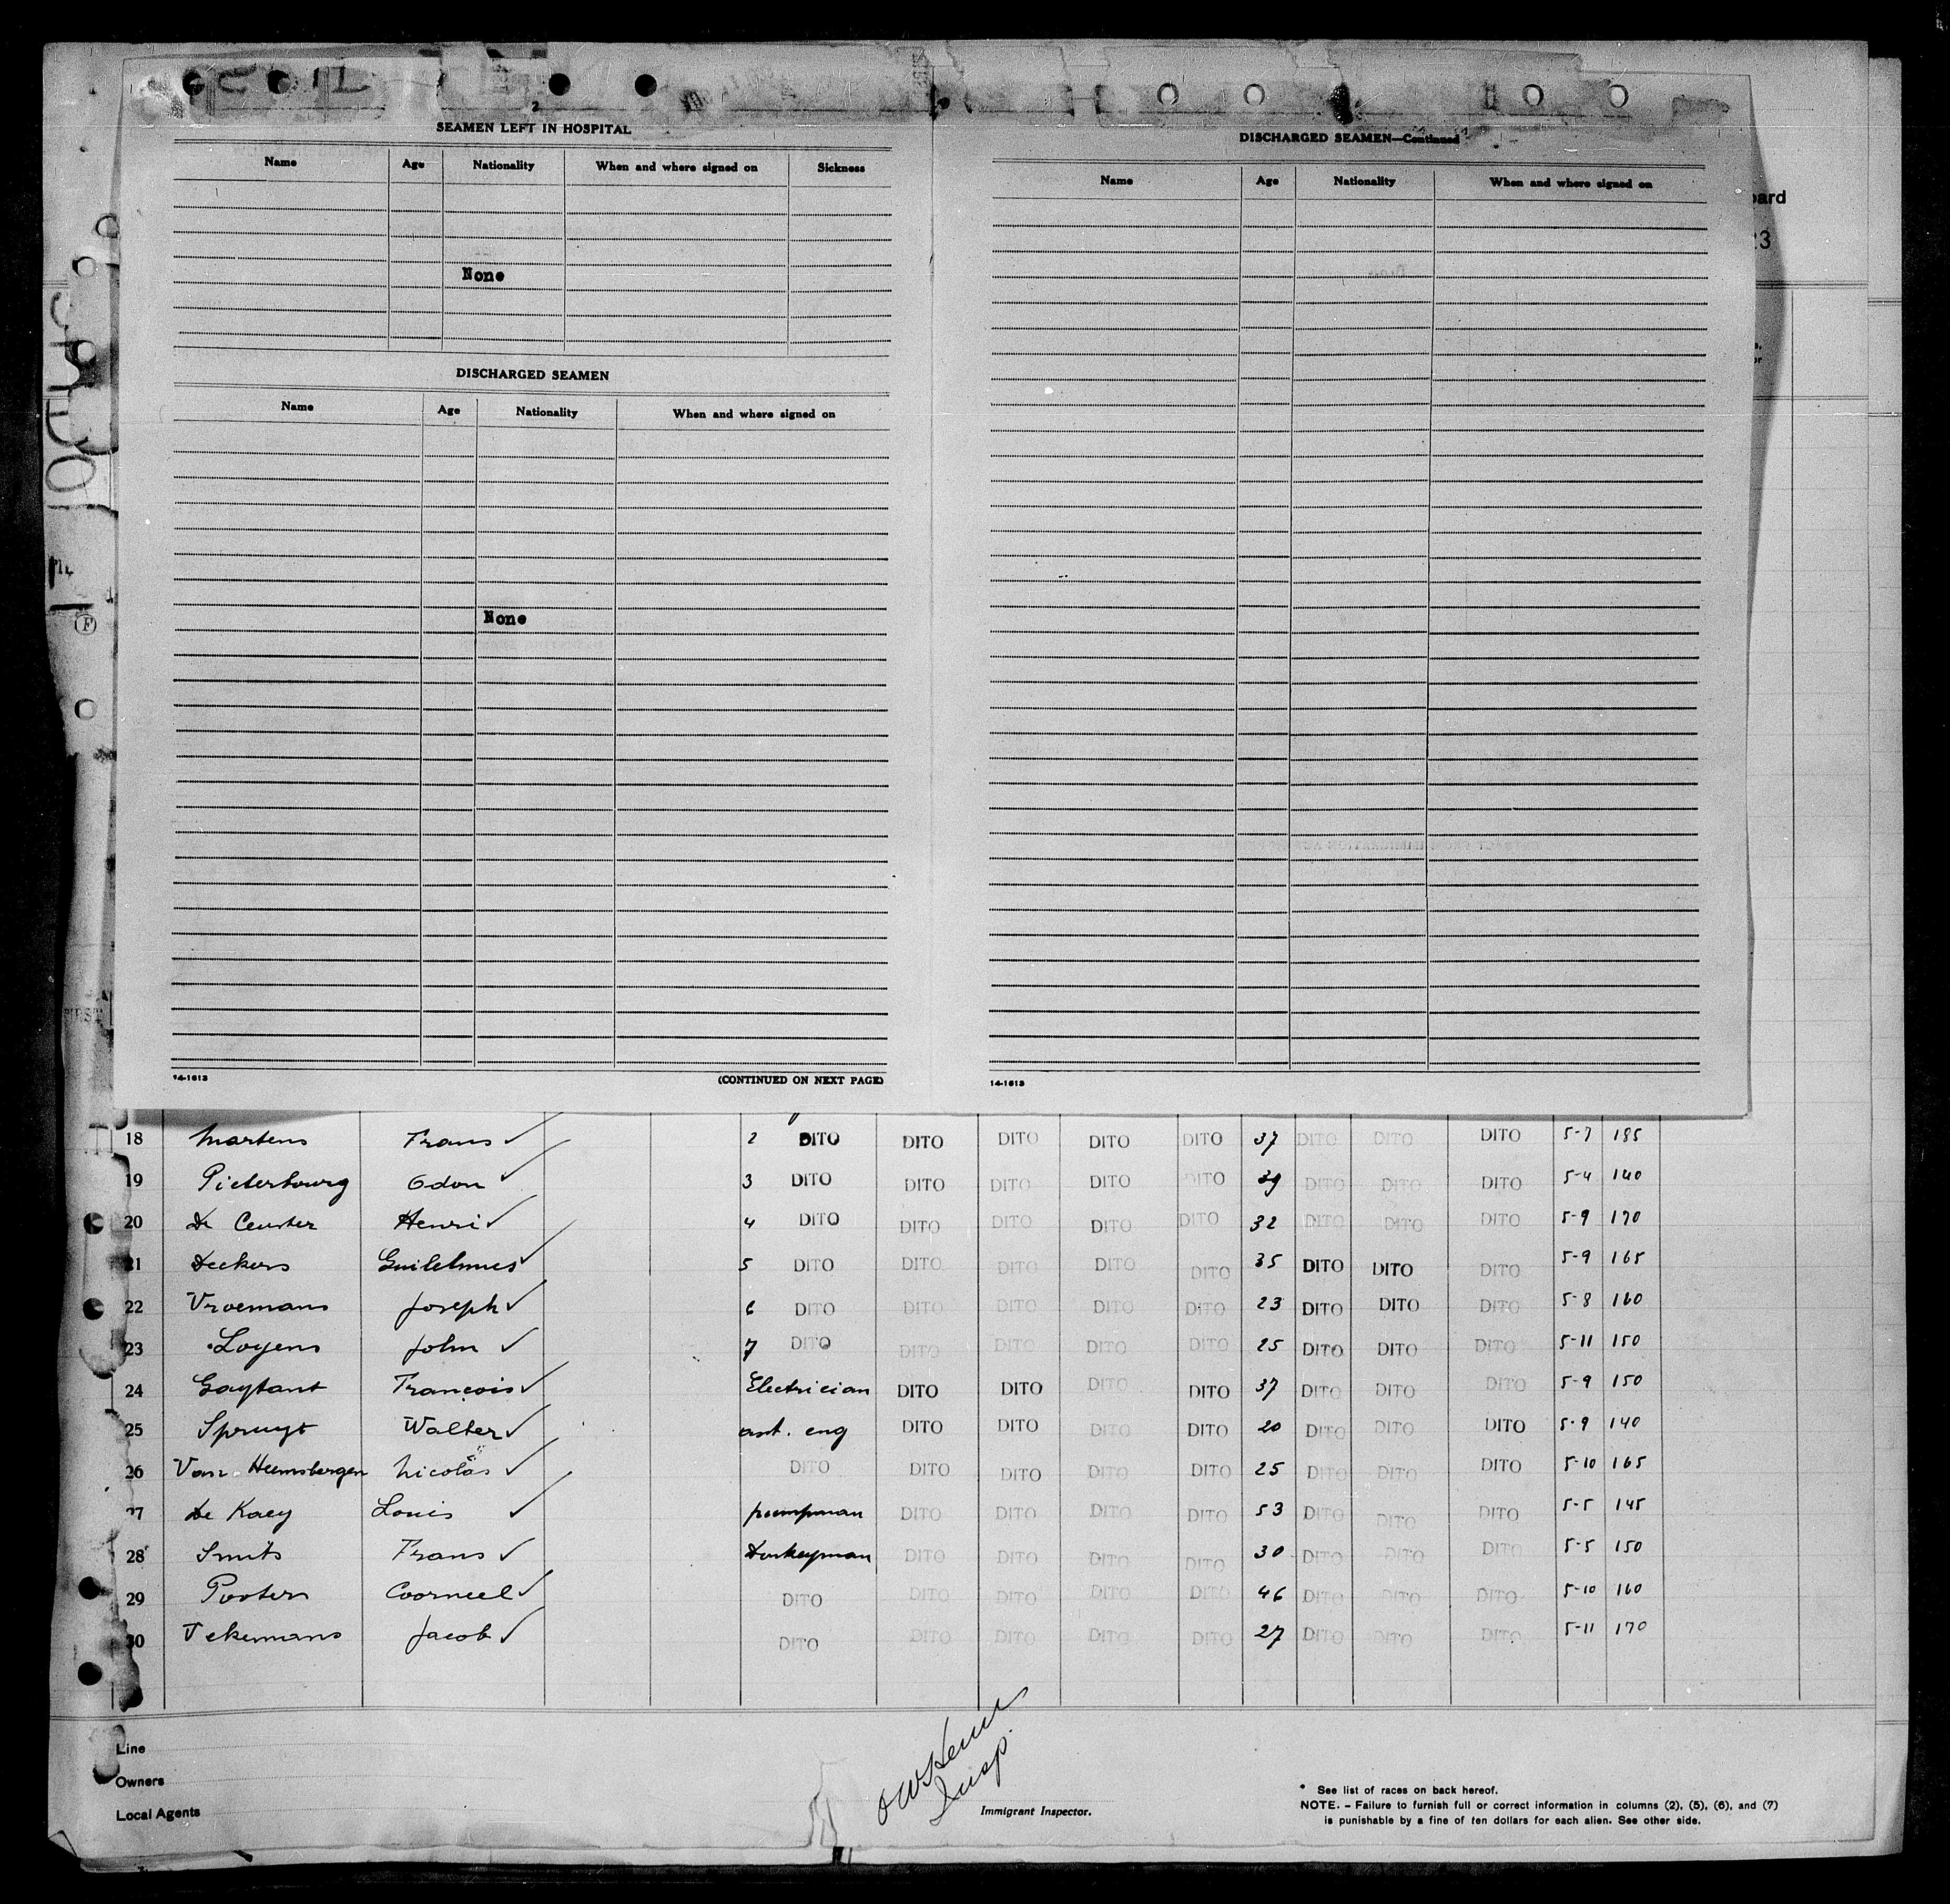 2
SEAMEN LEFT IN HOSPITAL
Name Age Nationality When and where signed on Sickness
None
DISCHARGED SEAMEN
Name Age Nationality When and where signed on
None
14-1613 (CONTINUED ON NEXT PAGE)
DISCHARGED SEAMEN—Continued
Name Age Nationality When and where signed on
14-1613
18 Martens Frans ✓ 2 DITO DITO DITO DITO DITO 37 DITO DITO DITO 5-7 185
19 Pieterbourg Odon ✓ 3 DITO DITO DITO DITO DITO 39 DITO DITO DITO 5-4 140
20 De Ceuster Henri ✓ 4 DITO DITO DITO DITO DITO 32 DITO DITO DITO 5-9 170
21 Deckers Guilelmus ✓ 5 DITO DITO DITO DITO DITO 35 DITO DITO DITO 5-9 165
22 Vroemans Joseph ✓ 6 DITO DITO DITO DITO DITO 23 DITO DITO DITO 5-8 160
23 Loyens John ✓ 7 DITO DITO DITO DITO DITO 25 DITO DITO DITO 5-11 150
24 Gaytant François ✓ Electrician DITO DITO DITO DITO 37 DITO DITO DITO 5-9 150
25 Spruyt Walter ✓ ast. eng DITO DITO DITO DITO 20 DITO DITO DITO 5-9 140
26 Van Heemsbergen Nicolas ✓ DITO DITO DITO DITO DITO 25 DITO DITO DITO 5-10 165
27 De Kaey Louis ✓ pumpman DITO DITO DITO DITO 53 DITO DITO DITO 5-5 145
28 Smits Frans ✓ Donkeyman DITO DITO DITO DITO 30 DITO DITO DITO 5-5 150
29 Pooters Coorneel ✓ DITO DITO DITO DITO DITO 46 DITO DITO DITO 5-10 160
30 Tekemans Jacob ✓ DITO DITO DITO DITO DITO 27 DITO DITO DITO 5-11 170
Line
Owners
Local Agents
Insp.
Immigrant Inspector.
* See list of races on back hereof.
NOTE. – Failure to furnish full or correct information in columns (2), (5), (6), and (7)
is punishable by a fine of ten dollars for each alien. See other side.